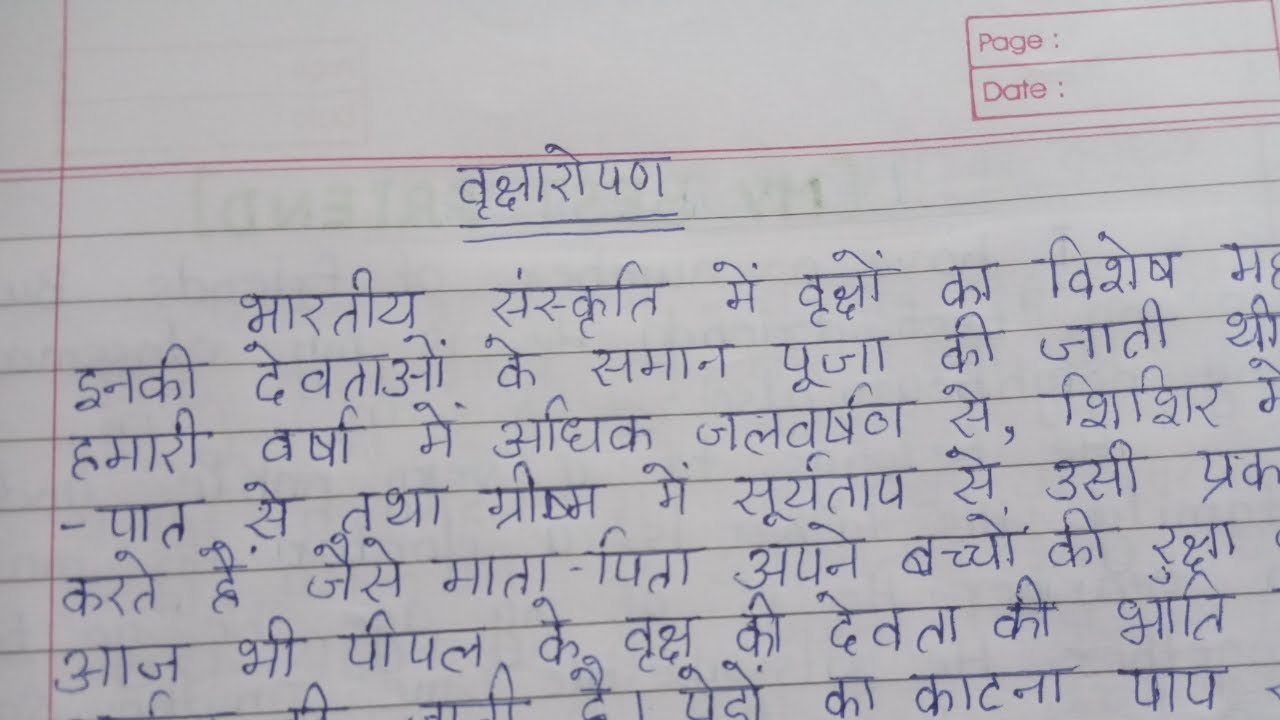 Page :
Date :
वृक्षारोपण
भारतीय संस्कृति में वृक्षों का विशेष
इनकी देवताओं के समान पूजा की जाती थी
हमारी वर्षा में अधिक जलवर्षण से, शिशिर में
-पात से तथा ग्रीष्म में सूर्यताप से उसी प्रक
करते हैं जैसे माता-पिता अपने बच्चों की रक्षा
आज भी पीपल के वृक्ष की देवता की भाति
है। पेड़ों का काटना पाप